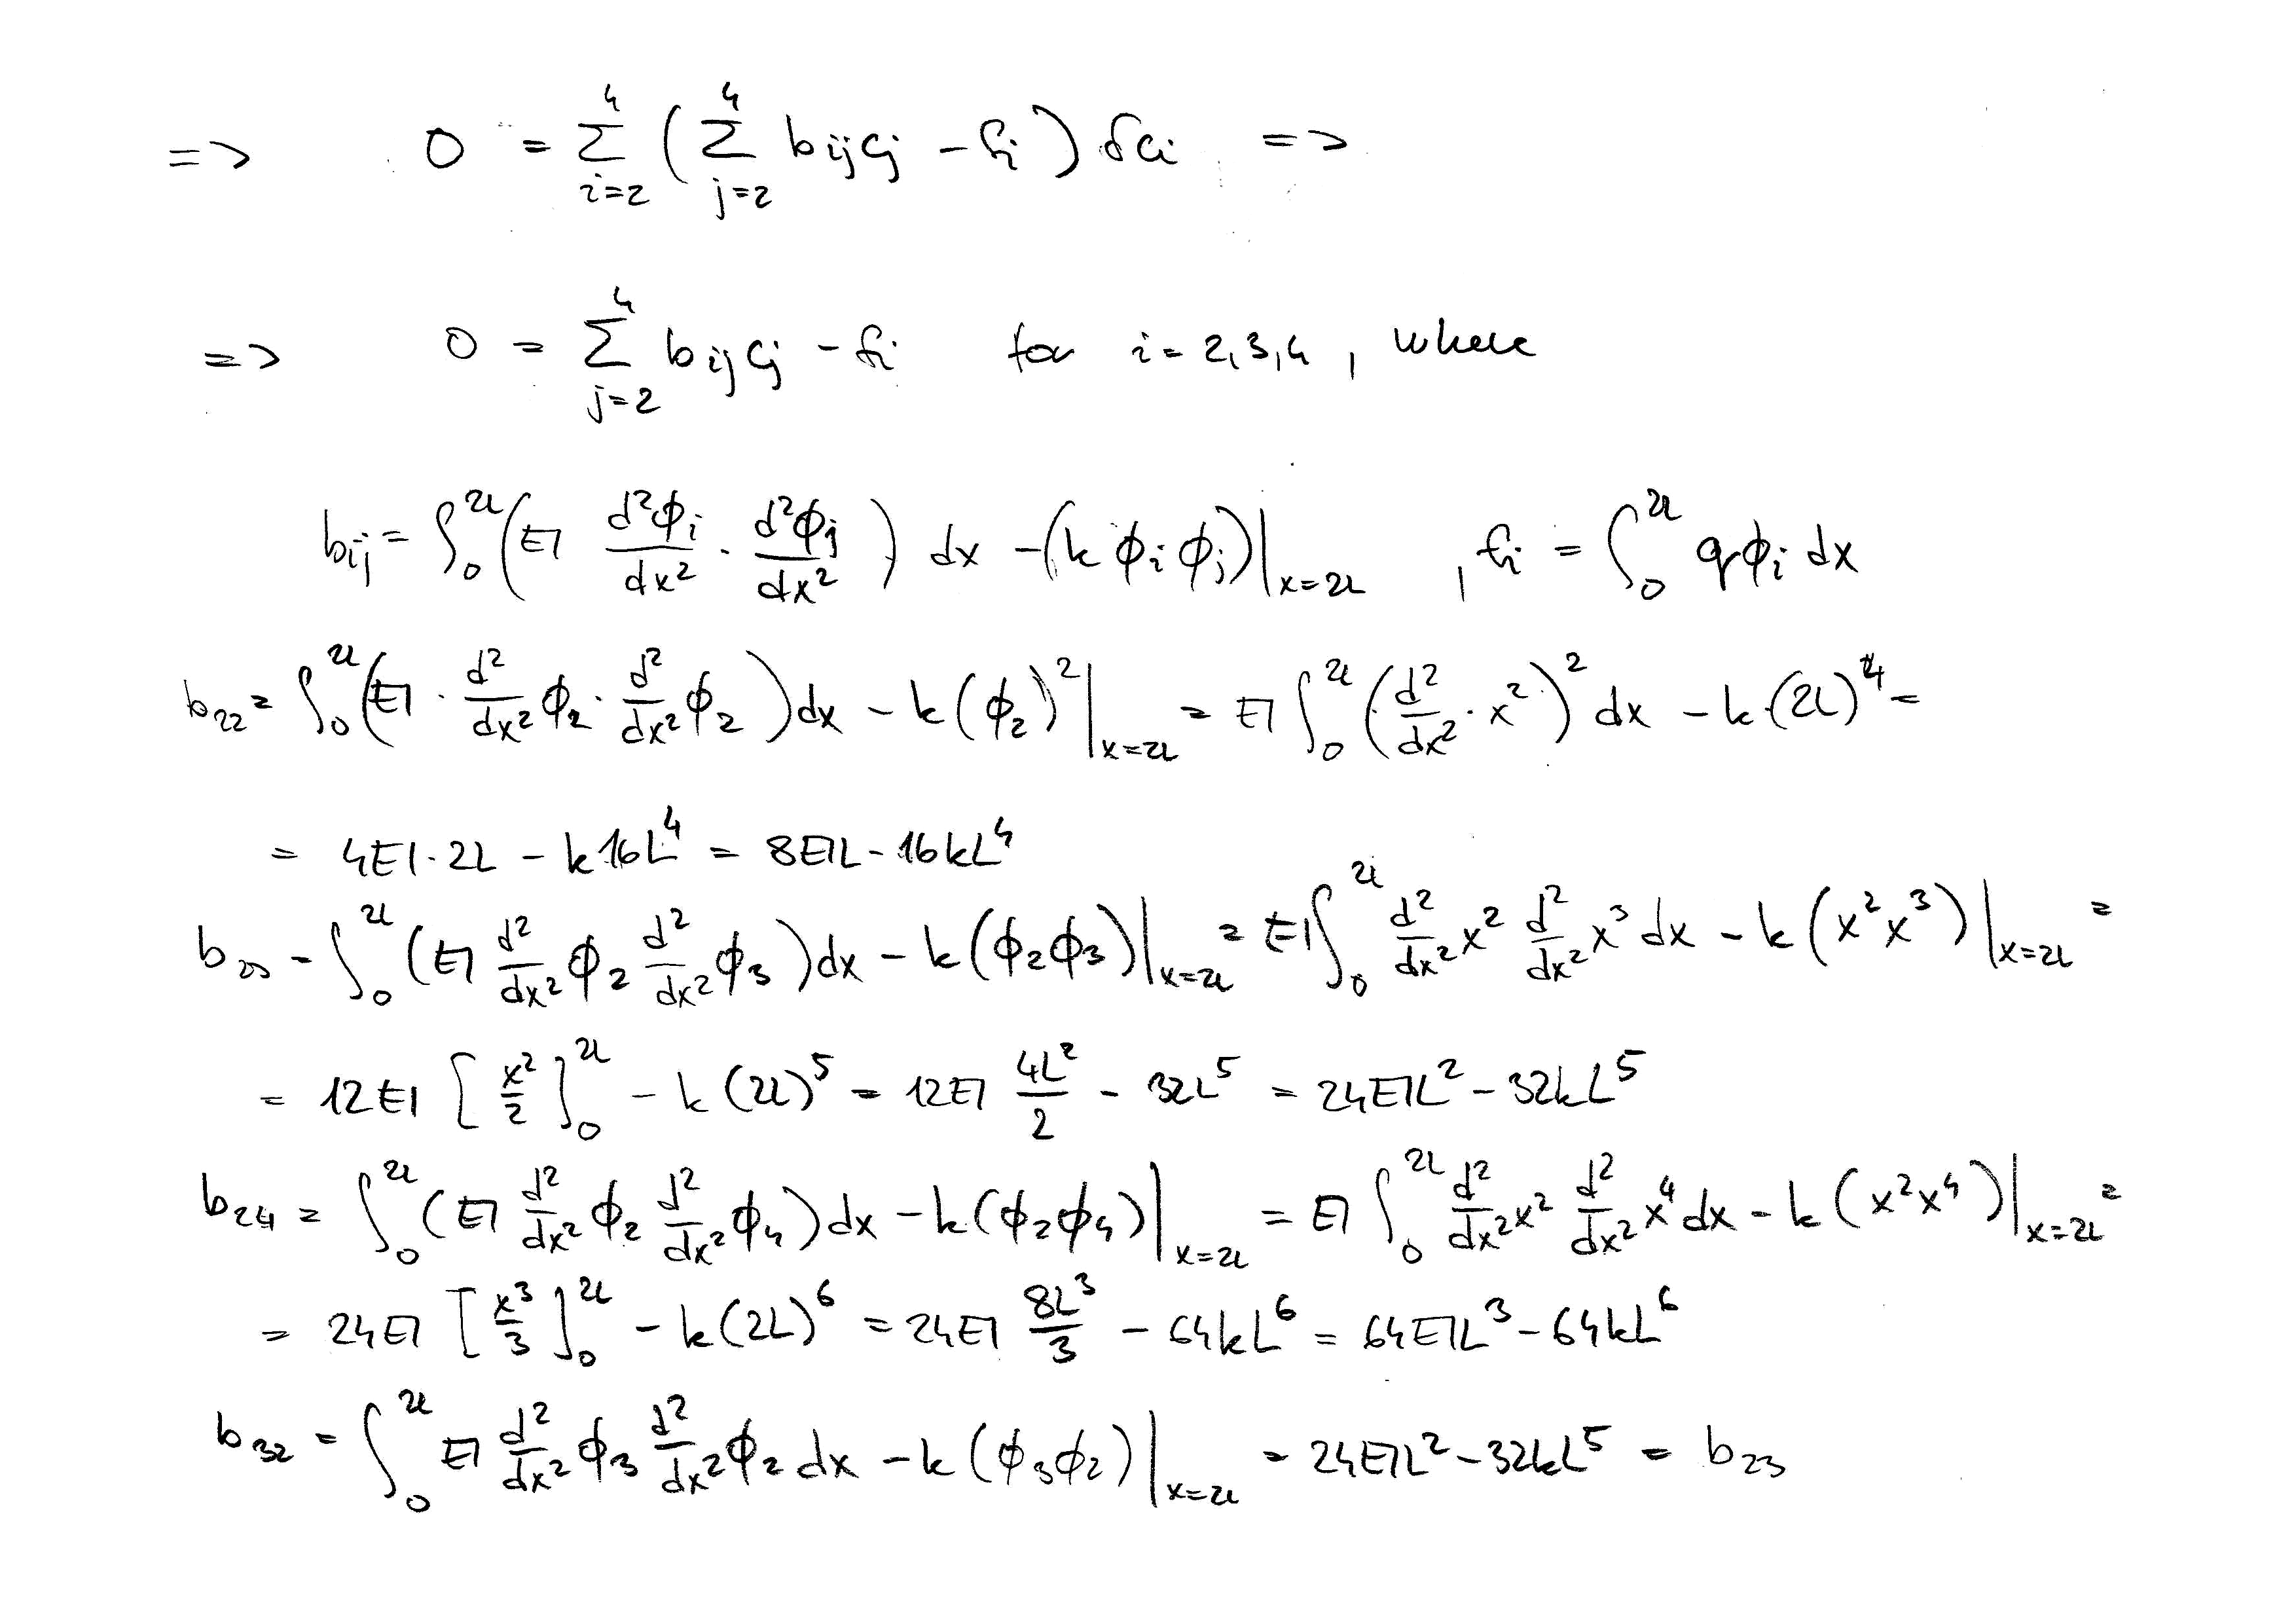 => 0 = Σ_{i=2}^{4} ( Σ_{j=2}^{4} b_{ij} c_j - f_i ) δc_i =>
=> 0 = Σ_{j=2}^{4} b_{ij} c_j - f_i for i = 2,3,4 , where
b_{ij} = ∫_0^{2L} ( EI d²ϕ_i/dx² · d²ϕ_j/dx² ) dx - (k ϕ_i ϕ_j)|_{x=2L} , f_i = ∫_0^{2L} qϕ_i dx
b_{22} = ∫_0^{2L} ( EI · d²/dx² ϕ_2 · d²/dx² ϕ_2 ) dx - k (ϕ_2)²|_{x=2L} = EI ∫_0^{2L} ( d²/dx² · x² )² dx - k (2L)^4 =
= 4EI · 2L - k16L^4 = 8EIL - 16kL^4
b_{23} = ∫_0^{2L} ( EI d²/dx² ϕ_2 d²/dx² ϕ_3 ) dx - k (ϕ_2ϕ_3)|_{x=2L} = EI ∫_0^{2L} d²/dx² x² d²/dx² x³ dx - k (x² x³)|_{x=2L} =
= 12EI [ x²/2 ]_0^{2L} - k (2L)^5 = 12EI 4L²/2 - 32L^5 = 24EIL² - 32kL^5
b_{24} = ∫_0^{2L} ( EI d²/dx² ϕ_2 d²/dx² ϕ_4 ) dx - k (ϕ_2ϕ_4)|_{x=2L} = EI ∫_0^{2L} d²/dx² x² d²/dx² x^4 dx - k ( x² x^4 )|_{x=2L} =
= 24EI [ x³/3 ]_0^{2L} - k (2L)^6 = 24EI 8L³/3 - 64kL^6 = 64EIL³ - 64kL^6
b_{32} = ∫_0^{2L} EI d²/dx² ϕ_3 d²/dx² ϕ_2 dx - k (ϕ_3ϕ_2)|_{x=2L} = 24EIL² - 32kL^5 = b_{23}